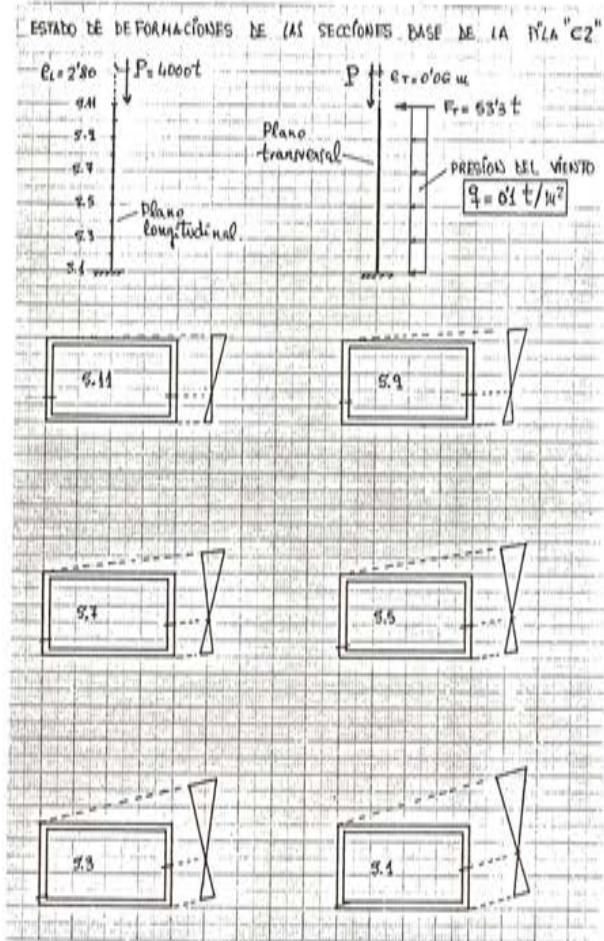 ESTADO DE DEFORMACIONES DE LAS SECCIONES BASE DE LA PILA "C2"
eL = 2'80
P = 4000t
P
eT = 0'06 m
FT = 53'3 t
S.11
S.9
S.7
S.5
S.3
S.1
Plano
longitudinal.
Plano
transversal
PRESIÓN DEL VIENTO
q = 0'1 t/m²
S.11
S.9
S.7
S.5
S.3
S.1